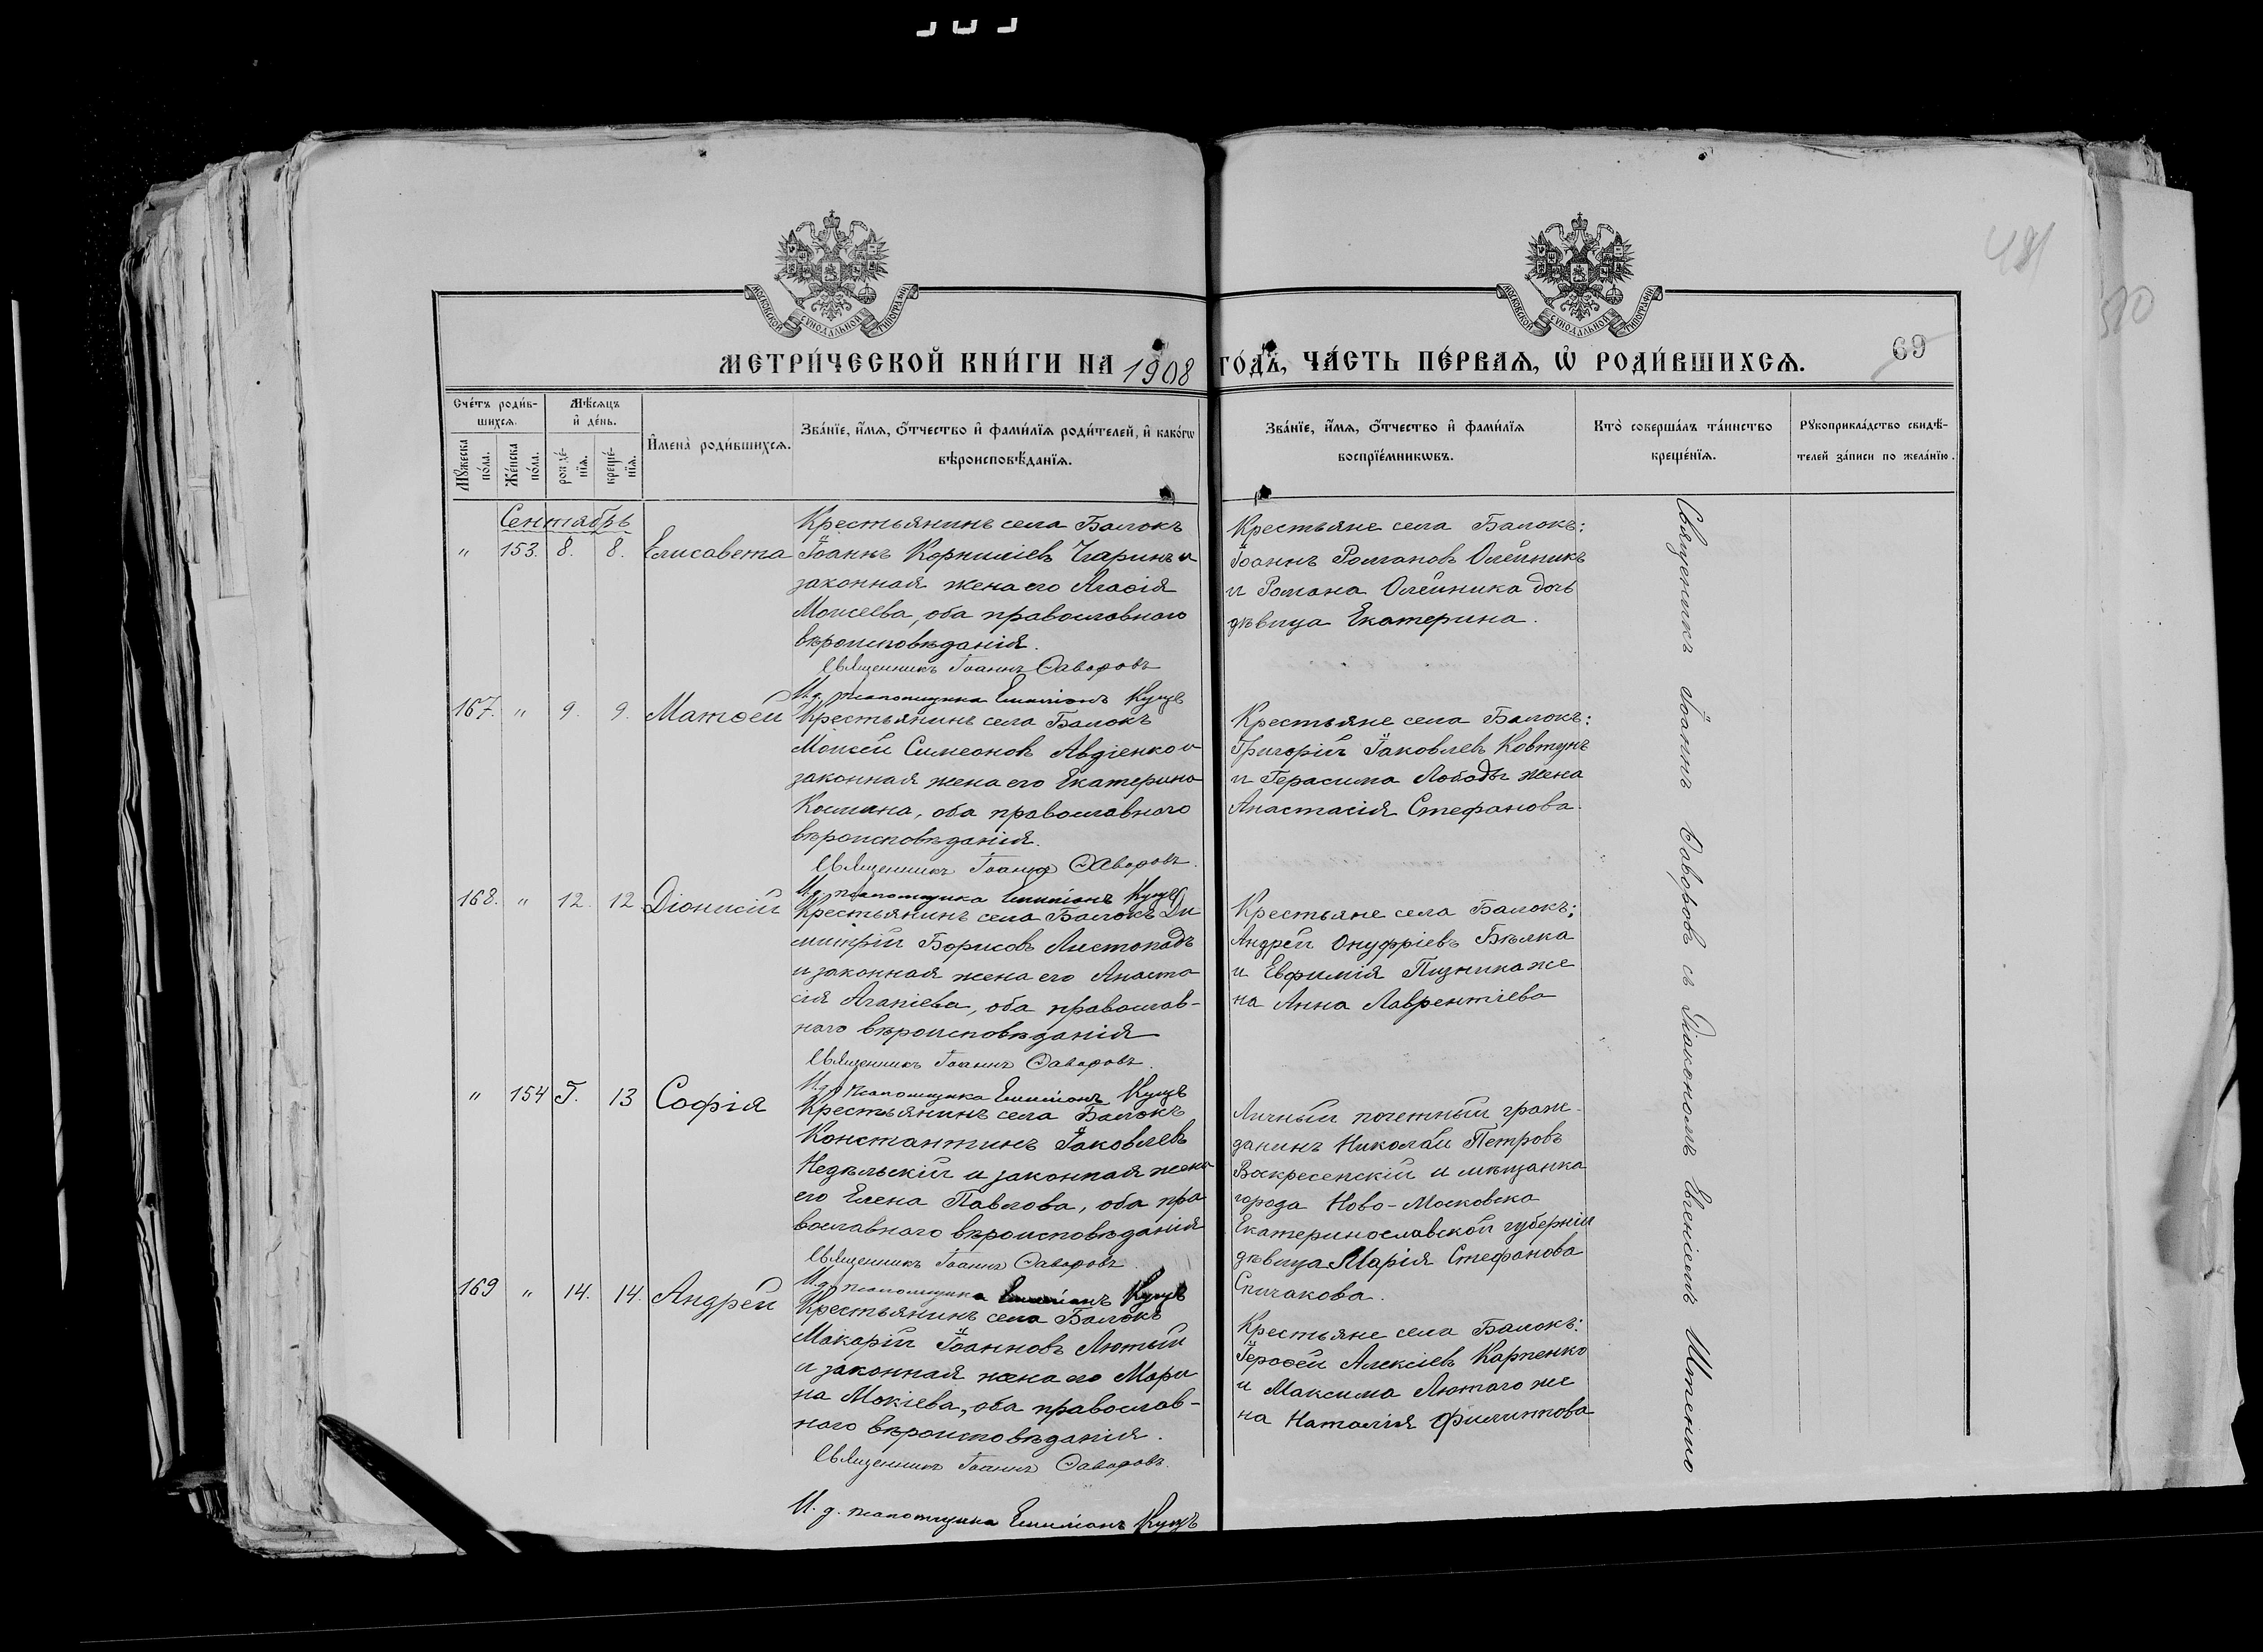 МОСКОВСКОЙ СѴНОДАЛЬНОЙ ТИПОГРАФІИ
МОСКОВСКОЙ СѴНОДАЛЬНОЙ ТИПОГРАФІИ
МЕТРИ́ЧЕСКОЙ КНИ́ГИ НА 1908 ГО́ДЪ, ЧА́СТЬ ПЕ́РВАЯ, Ѡ҆ РОДИ́ВШИХСѦ.
69
Сче́тъ роди́в-
шихсѧ.
Мѣ́сѧцъ
и҆ де́нь.
Мꙋ́жеска
по́ла.
Же́нска
по́ла.
рожде́-
нїѧ.
креще́-
нїѧ.
И҆мена̀ роди́вшихсѧ.
Зва́нїе, и҆́мѧ, ѻ҆́тчество и҆ фами́лїѧ роди́телей, и҆ како́гѡ
вѣроисповѣ́данїѧ.
Зва́нїе, и҆́мѧ, ѻ҆́тчество и҆ фами́лїѧ
воспрїе́мникѡвъ.
Кто̀ соверша́лъ та́инство
креще́нїѧ.
Рꙋкоприкла́дство свидѣ́-
телей за́писи по жела́нїю.
Сентябрь
" 153. 8. 8. Елисавета
Крестьянинъ села Балокъ
Іоаннъ Корниліевъ и
законная жена его Агаѳія
Моисеева, оба православнаго
вѣроисповѣданія.
Священникъ Іоаннъ Ѳаворовъ
И. д. псаломщика Емиліанъ Куцъ
Крестьяне села Балокъ:
Іоаннъ Романовъ Олейникъ
и Романа Олейника дочь
дѣвица Екатерина.
167. " 9. 9. Матѳей
Крестьянинъ села Балокъ
Моисей Симеоновъ Авдіенко и
законная жена его Екатерина
Космина, оба православнаго
вѣроисповѣданія.
Священникъ Іоаннъ Ѳаворовъ.
И. д. псаломщика Емиліанъ Куцъ
Крестьяне села Балокъ:
Григорій Іаковлевъ Ковтунъ
и Герасима Лободы жена
Анастасія Стефанова.
168. " 12. 12. Діонисій
Крестьянинъ села Балокъ Ди
митрій Борисовъ Листопадъ
и законная жена его Анаста
сія Агапіева, оба православ-
наго вѣроисповѣданія
Священникъ Іоаннъ Ѳаворовъ.
И. д. псаломщика Емиліанъ Куцъ
Крестьяне села Балокъ:
Андрей Онуфріевъ Бѣлка
и Евфимія же
на Анна Лаврентіева
" 154 13 Софія
Крестьянинъ села Балокъ
Константинъ Іаковлевъ
Недѣльскій и законная жена
его Елена Павлова, оба пра
вославнаго вѣроисповѣданія
Священникъ Іоаннъ Ѳаворовъ.
И. д. псаломщика Емиліанъ Куцъ
Личный почетный граж-
данинъ Николай Петровъ
Воскресенскій и мѣщанка
города Ново-Московска
Екатеринославской губерніи
дѣвица Марія Стефанова
Спичакова.
169 " 14. 14. Андрей
Крестьянинъ села Балокъ
Макарій Іоанновъ Лютый
и законная жена его Мари
на Мокіева, оба православ-
наго вѣроисповѣданія.
Священникъ Іоаннъ Ѳаворовъ.
И. д. псаломщика Емиліанъ Куцъ
Крестьяне села Балокъ:
Іероѳей Алексіевъ Карпенко
и Максима Лютаго же
на Наталія Филиппова
Священникъ Іоаннъ Ѳаворовъ съ Діакономъ Евгеніемъ